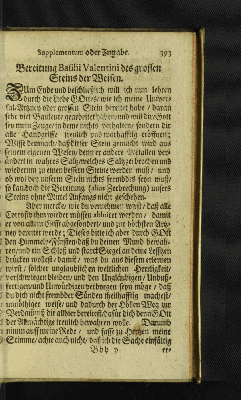 Supplementum oder Zugabe. 393
Bereitung Basilii Valentini des grossen
Steins der Weisen.
ZUm Ende und beschließlich will ich nun lehren
durch die Liebe GOttes / wie ich meine Univer-
sal-Artzney oder grossen Stein bereitet habe / daran
sehr viel Bauleute gearbeitet haben / und will nur Gott
zu
alle Handgriffe treulich und warhafftig eröffnen;
Wisse demnach / daß dieser Stein gemacht wird aus
seinem eigenen Wesen / denn er andere Metallen ver-
ändert in wahres Saltz / welches Saltz gebrochen und
wiederum zu einen bessern Steine werden muß / und
ob wol bey unserm Stein nichts fremddes seyn muß /
so kan doch die Bereitung (alias Zerbrechung) unsers
Steins ohne Mittel Anfangs nicht geschehen.
Aber mercke / wie du vernehmen wirst / daß alle
Corrosiv ihm wieder müssen abluiret werden / damit
er von allem Gifft abgesondert / und zur höchsten Artz-
ney bereitet werde; Dieses bitte ich aber durch GOtt
den Himmels-Fürsten / daß du deinen Mund bewah-
rest / und ein Schloß und starck Siegel an deine Leffzen
drücken wollest / damit / was du aus diesem erlernen
wirst / solches unglaublich an weltlicher Herrligkeit /
verschwiegen bleiben / und den Ungläubigen / Unbuß-
fertigen und Unwürdigen verborgen seyn möge / daß
du dich nicht frembder Sünden theilhafftig machest /
unnöthiger weise / und dadurch der Höllen Weg zur
Verdamniß dir allhier bereitest / dafür dich denn GOtt
der Allmächtige treulich bewahren wolle. Darumb
nimm auff meine Rede / und fasse zu Hertzen meine
Stimme / achte auch nicht / daß ich die Sache einfältig
Bbb v er-